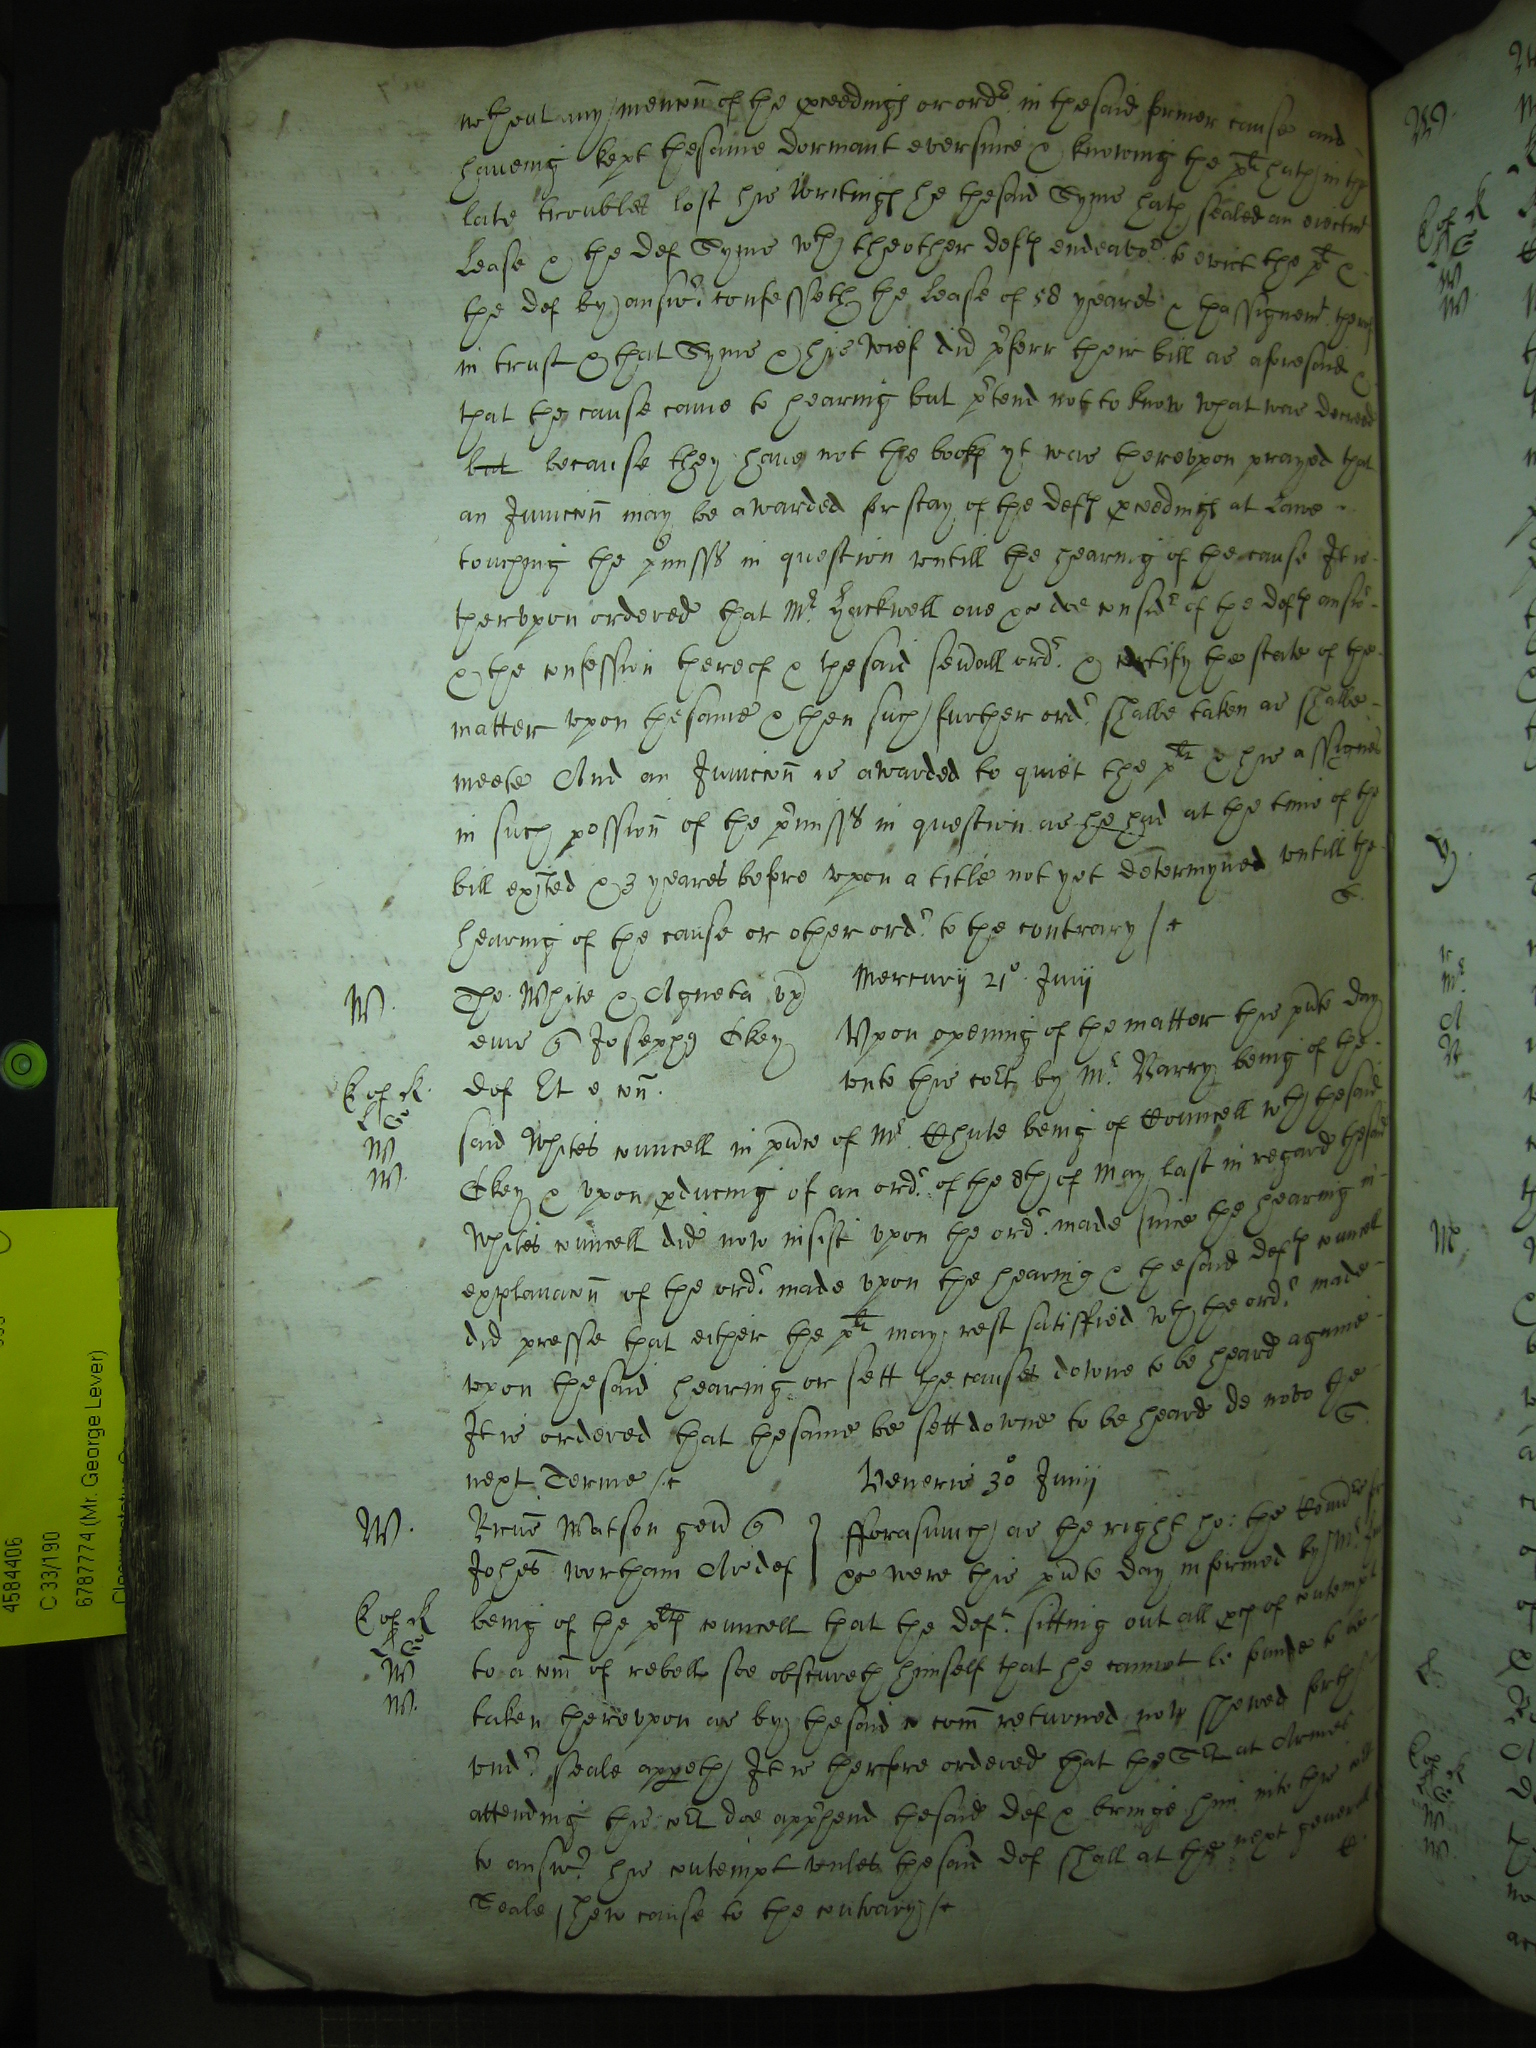 wthout any mencõn of the pceedings or ordr in the said former cause and
haveing kept the same dormant ever since & knowing the plt hath in the
late troubles lost his writings he the said Syms hath sealed an eiectmt
Lease & the def Syms wth the other defts endeavor to evict the plt &
the def by answr confesseth the Lease of 58 yeares & thassignemt thereof
in trust & that Syms & his wief did prferr their bill as aforesaid &
that the cause came to hearing but prtend not to know what was decreed
but because they have not the books yt was therevpon prayed that
an Iniunccõn may be awarded for stay of the defts pceedings at Lawe
touching the prmisss in question vntill the hearing of the cause It is
thervpon ordered that Mr Hackwell one &c doe considr of the defts answr
& the confession thereof & the said sevall ordr & certify the state of the
matter vpon the same & then such further ordr shalbe taken as shalbe
meete And an Iniunccõn is awarded to quiet the plt & his assignes
in such possessiõn of the prmisss in question as he had at the time of the
bill exited & 3 yeares before vpon a title not yet determyned vntill the
hearing of the cause or other ordr to the contrary /c
G.
Mercurij 21o Junij
W. Tho. White & Agneta vx
eius q Joseph9 Ekey Vpon opening of the matter this pnte day
E of R. def Et e con. vnto this cort by Mr Barry being of the
L G
W
W. said Whites councell in pnce of Mr Chute being of Councell wth the said
Ekey & vpon pducing of an ordr of the 8th of May last in regard the said
Whites councell did now insist vpon the ordr made since the hearing in
explanacõn of the ordr made vpon the hearing & the said defts councel
did presse that either the plt may rest satisfied wth the ordr made
vpon the said hearing or sett the causes downe to be heard againe
It is ordered that the same be sett downe to be heard de novo the
next Terme /c
G.
Veneris 30 Junij
W. Brian Matson gen q fforasmuch as the right ho: the Comrs for
Johes Wortham Ar def &c were this pnte day informed by Mr
E of R
L G
W
W. being of the plts councell that the deft sitting out all pces of contempt
to a com of rebell soe obscureth himself that he cannot be found to be
taken therevpon as by the said com returned now shewed forth
vndr seale appeth It is therefore ordered that the St at Armes
attending this cort doe apprhend the said def & bringe him into this cort
to answr his contempt vnles the said def shall at the next generall
Seale shew cause to the contrary /c
4584406
C 33/190
6787774 (Mr. George Lever)